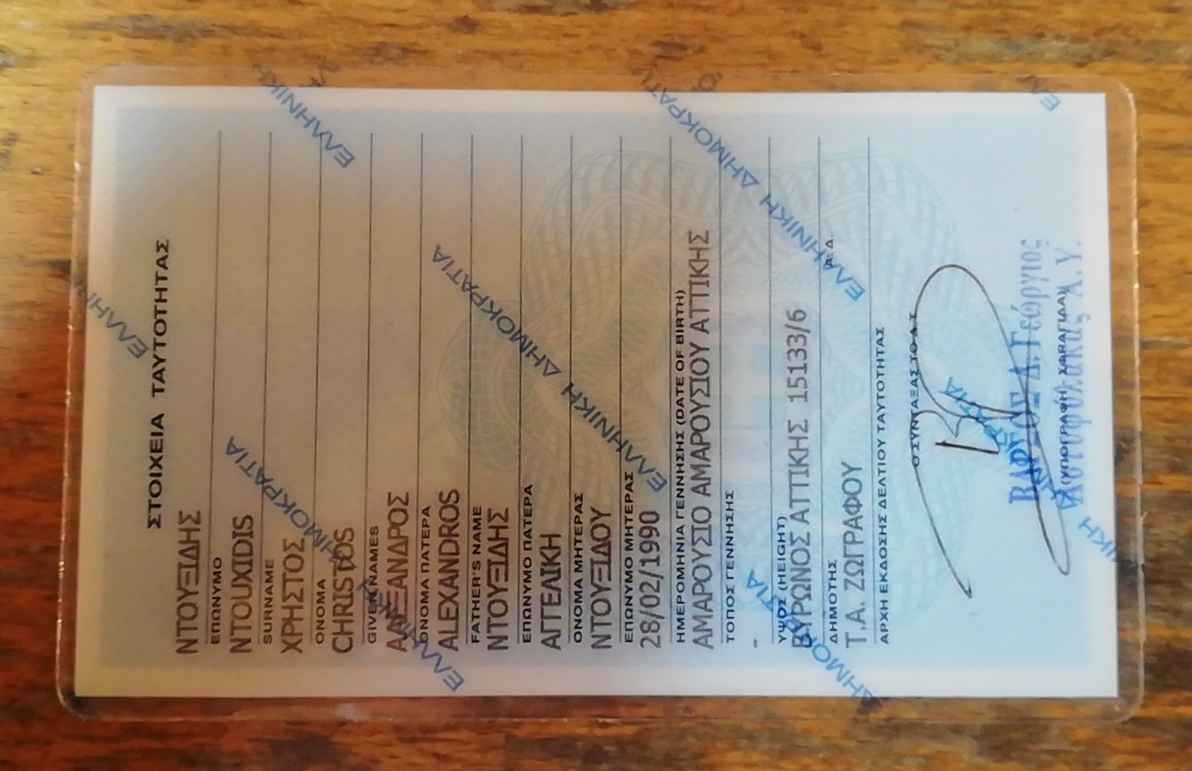 ΣΤΟΙΧΕΙΑ ΤΑΥΤΟΤΗΤΑΣ
ΝΤΟΥΞΙΔΗΣ
ΕΠΩΝΥΜΟ
NTOUXIDIS
SURNAME
ΧΡΗΣΤΟΣ
ΟΝΟΜΑ
CHRISTOS
GIVEN NAMES
ΑΛΕΞΑΝΔΡΟΣ
ΟΝΟΜΑ ΠΑΤΕΡΑ
ALEXANDROS
FATHER'S NAME
ΝΤΟΥΞΙΔΗΣ
ΕΠΩΝΥΜΟ ΠΑΤΕΡΑ
ΑΓΓΕΛΙΚΗ
ΟΝΟΜΑ ΜΗΤΕΡΑΣ
ΝΤΟΥΞΙΔΟΥ
ΕΠΩΝΥΜΟ ΜΗΤΕΡΑΣ
28/02/1990
ΗΜΕΡΟΜΗΝΙΑ ΓΕΝΝΗΣΗΣ (DATE OF BIRTH)
ΑΜΑΡΟΥΣΙΟ ΑΜΑΡΟΥΣΙΟΥ ΑΤΤΙΚΗΣ
ΤΟΠΟΣ ΓΕΝΝΗΣΗΣ
-
ΥΨΟΣ (HEIGHT)
ΒΥΡΩΝΟΣ ΑΤΤΙΚΗΣ 15133/6
ΔΗΜΟΤΗΣ Μ.Α.
Τ.Α. ΖΩΓΡΑΦΟΥ
ΑΡΧΗ ΕΚΔΟΣΗΣ ΔΕΛΤΙΟΥ ΤΑΥΤΟΤΗΤΑΣ
Ο ΣΥΝΤΑΞΑΣ ΤΟ Δ.Τ.
Δ. Γεώργιος
(ΥΠΟΓΡΑΦΗ, ΣΦΡΑΓΙΔΑ)
Αστυφύλακας Α.Υ.
ΕΛΛΗΝΙΚΗ ΔΗΜΟΚΡΑΤΙΑ
ΕΛΛΗΝΙΚΗ ΔΗΜΟΚΡΑΤΙΑ
ΕΛΛΗΝΙΚΗ ΔΗΜΟΚΡΑΤΙΑ